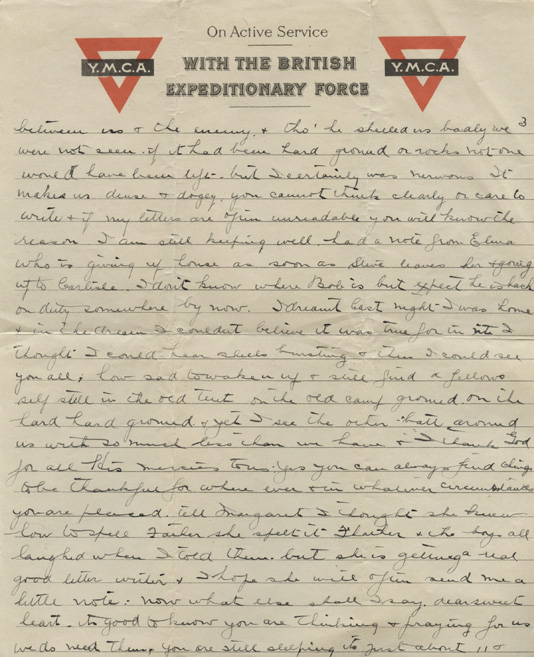 On Active Service
WITH THE BRITISH
EXPEDITIONARY FORCE
Y.M.C.A.
Y.M.C.A.
3
between us & the enemy, & tho' he shelled us badly we
were not seen. if it had been hard ground or rocks not one
would have been left. but I certainly was nervous It
makes us dense & dopey. you cannot think clearly or care to
write & if my letters are ofen unreadable you will know the
reason I am still keeping well. had a note from Elma
who is giving up house as soon as leaves her & going
up to Carlisle. I don't know where Bob is but expect he is back
on duty somewhere by now. I dreamt last night I was home
& in the dream I couldent believe it was true for in it I
thought I could hear shells bursting & then I could see
you all, how sad to waken up & still find a fellows
self still in the old tent on the old camp ground, on the
hard hard ground & yet I see the other around
us with so much less than we have & I thank God
for all His mercies to us. yes you can always find things
to be thankful for where ever & in whatever circumstances
you are placed. tell Margaret I thought she knew
how to spell Father she spelt it & the boys all
laughed when I told them. but she is getting a real
good letter writer & I hope she will ofen send me a
little note. now what else shall I say. dear sweet
heart. its good to know you are thinking & praying for us
we do need them, you are still sleeping its just about 11